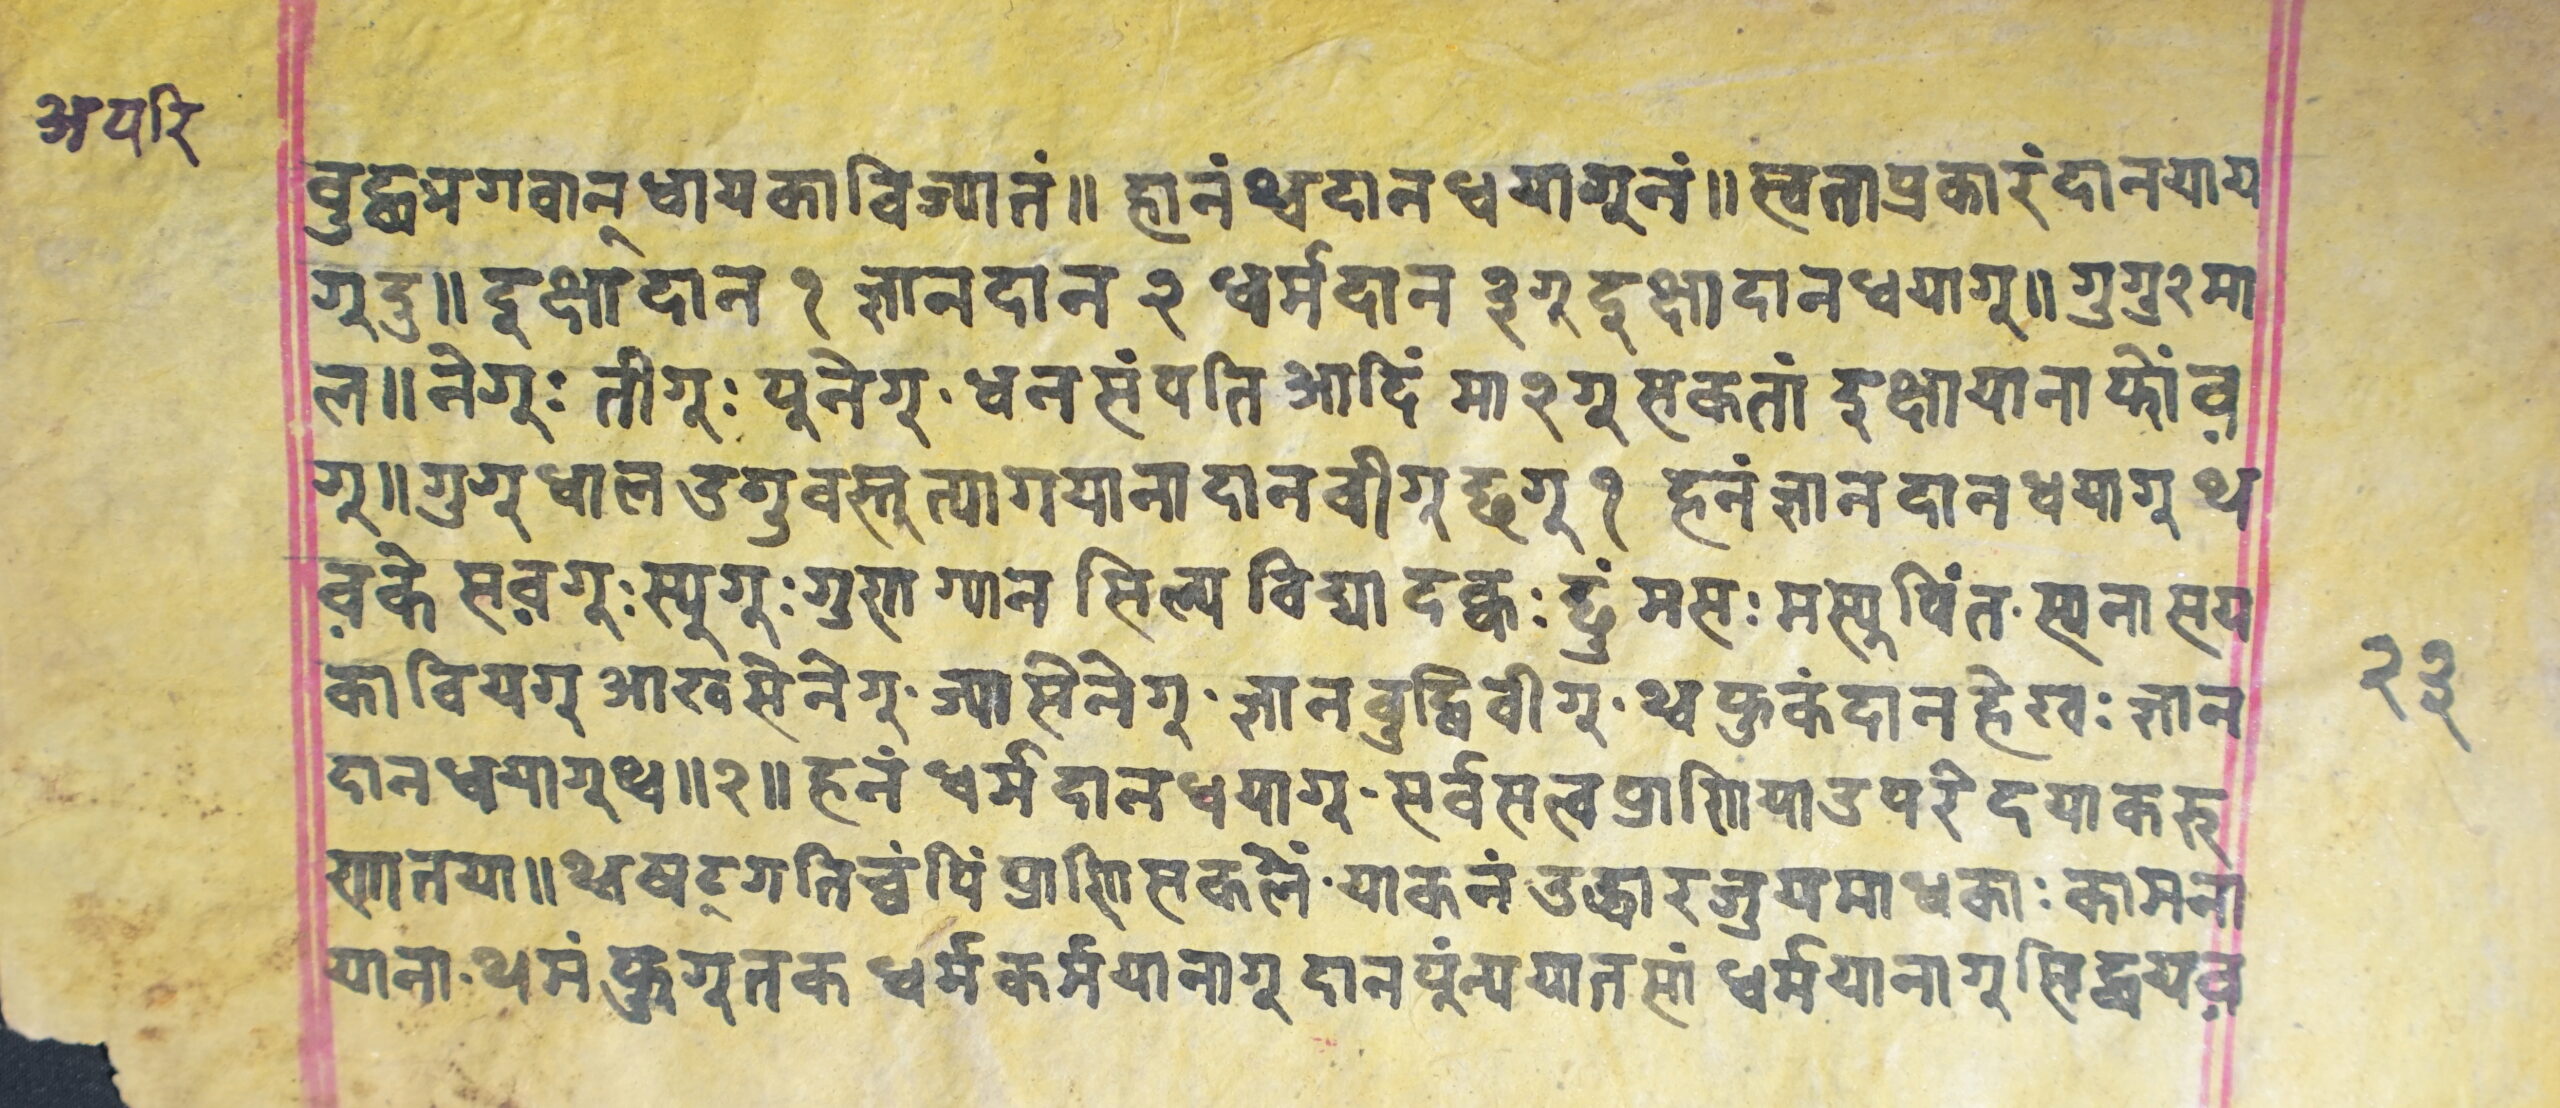 अपरि
बुद्धभगवान् धायका विज्यातं॥ हानं थ्वदान धयागूनं॥ स्वताप्रकारं दानयाय
गूदु॥ दुक्षादान १ ज्ञानदान २ धर्मदान ३ गू दुक्षादानधयागू॥ गुगु२मा
ल॥ नेगूः तीगूः पुनेगू· धनसंपति आदिं मा२गू सकतां दुक्षायाना फोंव़
गू॥ गुगूधाल उगुवस्तु त्यागयाना दानवीगू छगू १ हनं ज्ञानदानधयागू थ
व़के सव़गूः स्यूगूः गुणग्यान सिल्प विद्या दक्वः छुं मसः मस्यूपिंत· स्यनासय
काविय‍गू आखसेनेगू· ज्यासेनेगू· ज्ञानबुद्धिवीगू· थ्वफुकं दान हे खः ज्ञान
दानधयागूथ्व॥२॥ हनं धर्मदानधयागू-सर्वसत्वप्राणियाउपरे दयाकरु
णातया॥ थ्वषट्गतिच्वंपिं प्राणिसकलें·याकनं उद्धारजुयमाधकाः कामना
याना·थमं फुगूतक धर्मकर्मयानागू दानपुंन्ययातसां धर्मयानागू सिद्धयव़
२३